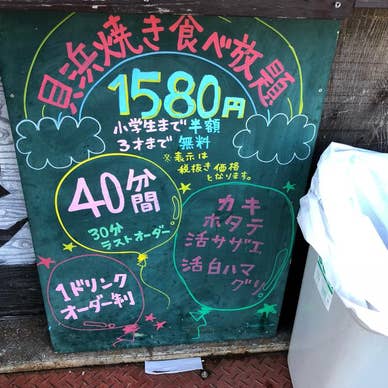 貝浜焼き食べ放題
1580円
小学生まで半額
3才まで無料
※表示は
税抜き価格
となります。
40分
間
30分
ラストオーダー。
カキ
ホタテ
活サザエ
活白ハマ
グリ。
1ドリンク
オーダー制